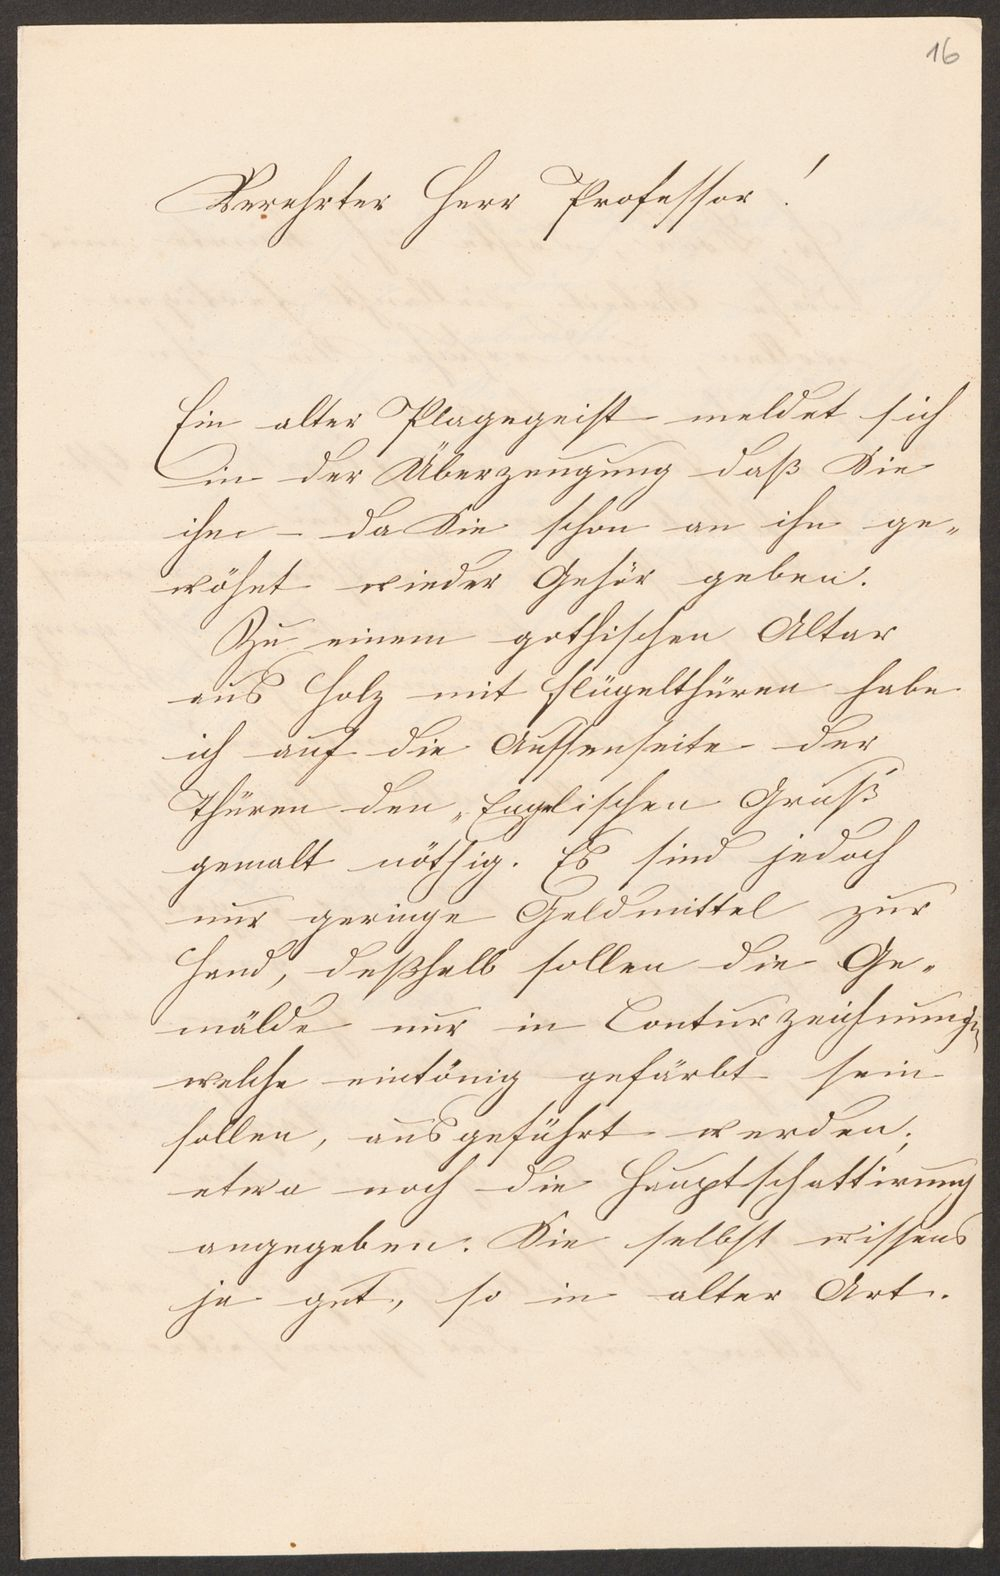 16
Verehrter Herr Professor!
Ein alter Plagegeist meldet sich
in der Überzeugung daß Sie
ihm – da Sie schon an ihn ge-
wöhnt wieder Gehör geben.
Zu einem gothischen Altar
aus Holz mit Flügelthüren habe
ich auf die Aussenseite der
Thüren den „Englischen Gruß"
gemalt nöthig. Es sind jedoch
nur geringe Geldmittel zur
Hand, deßhalb sollen die Ge-
mälde nur in Conturzeichnungen
welche eintönig gefärbt sein
sollen, ausgeführt werden;
etwa noch die Hauptschattirung
angegeben. Sie selbst wissens
ja gut, so in alter Art.